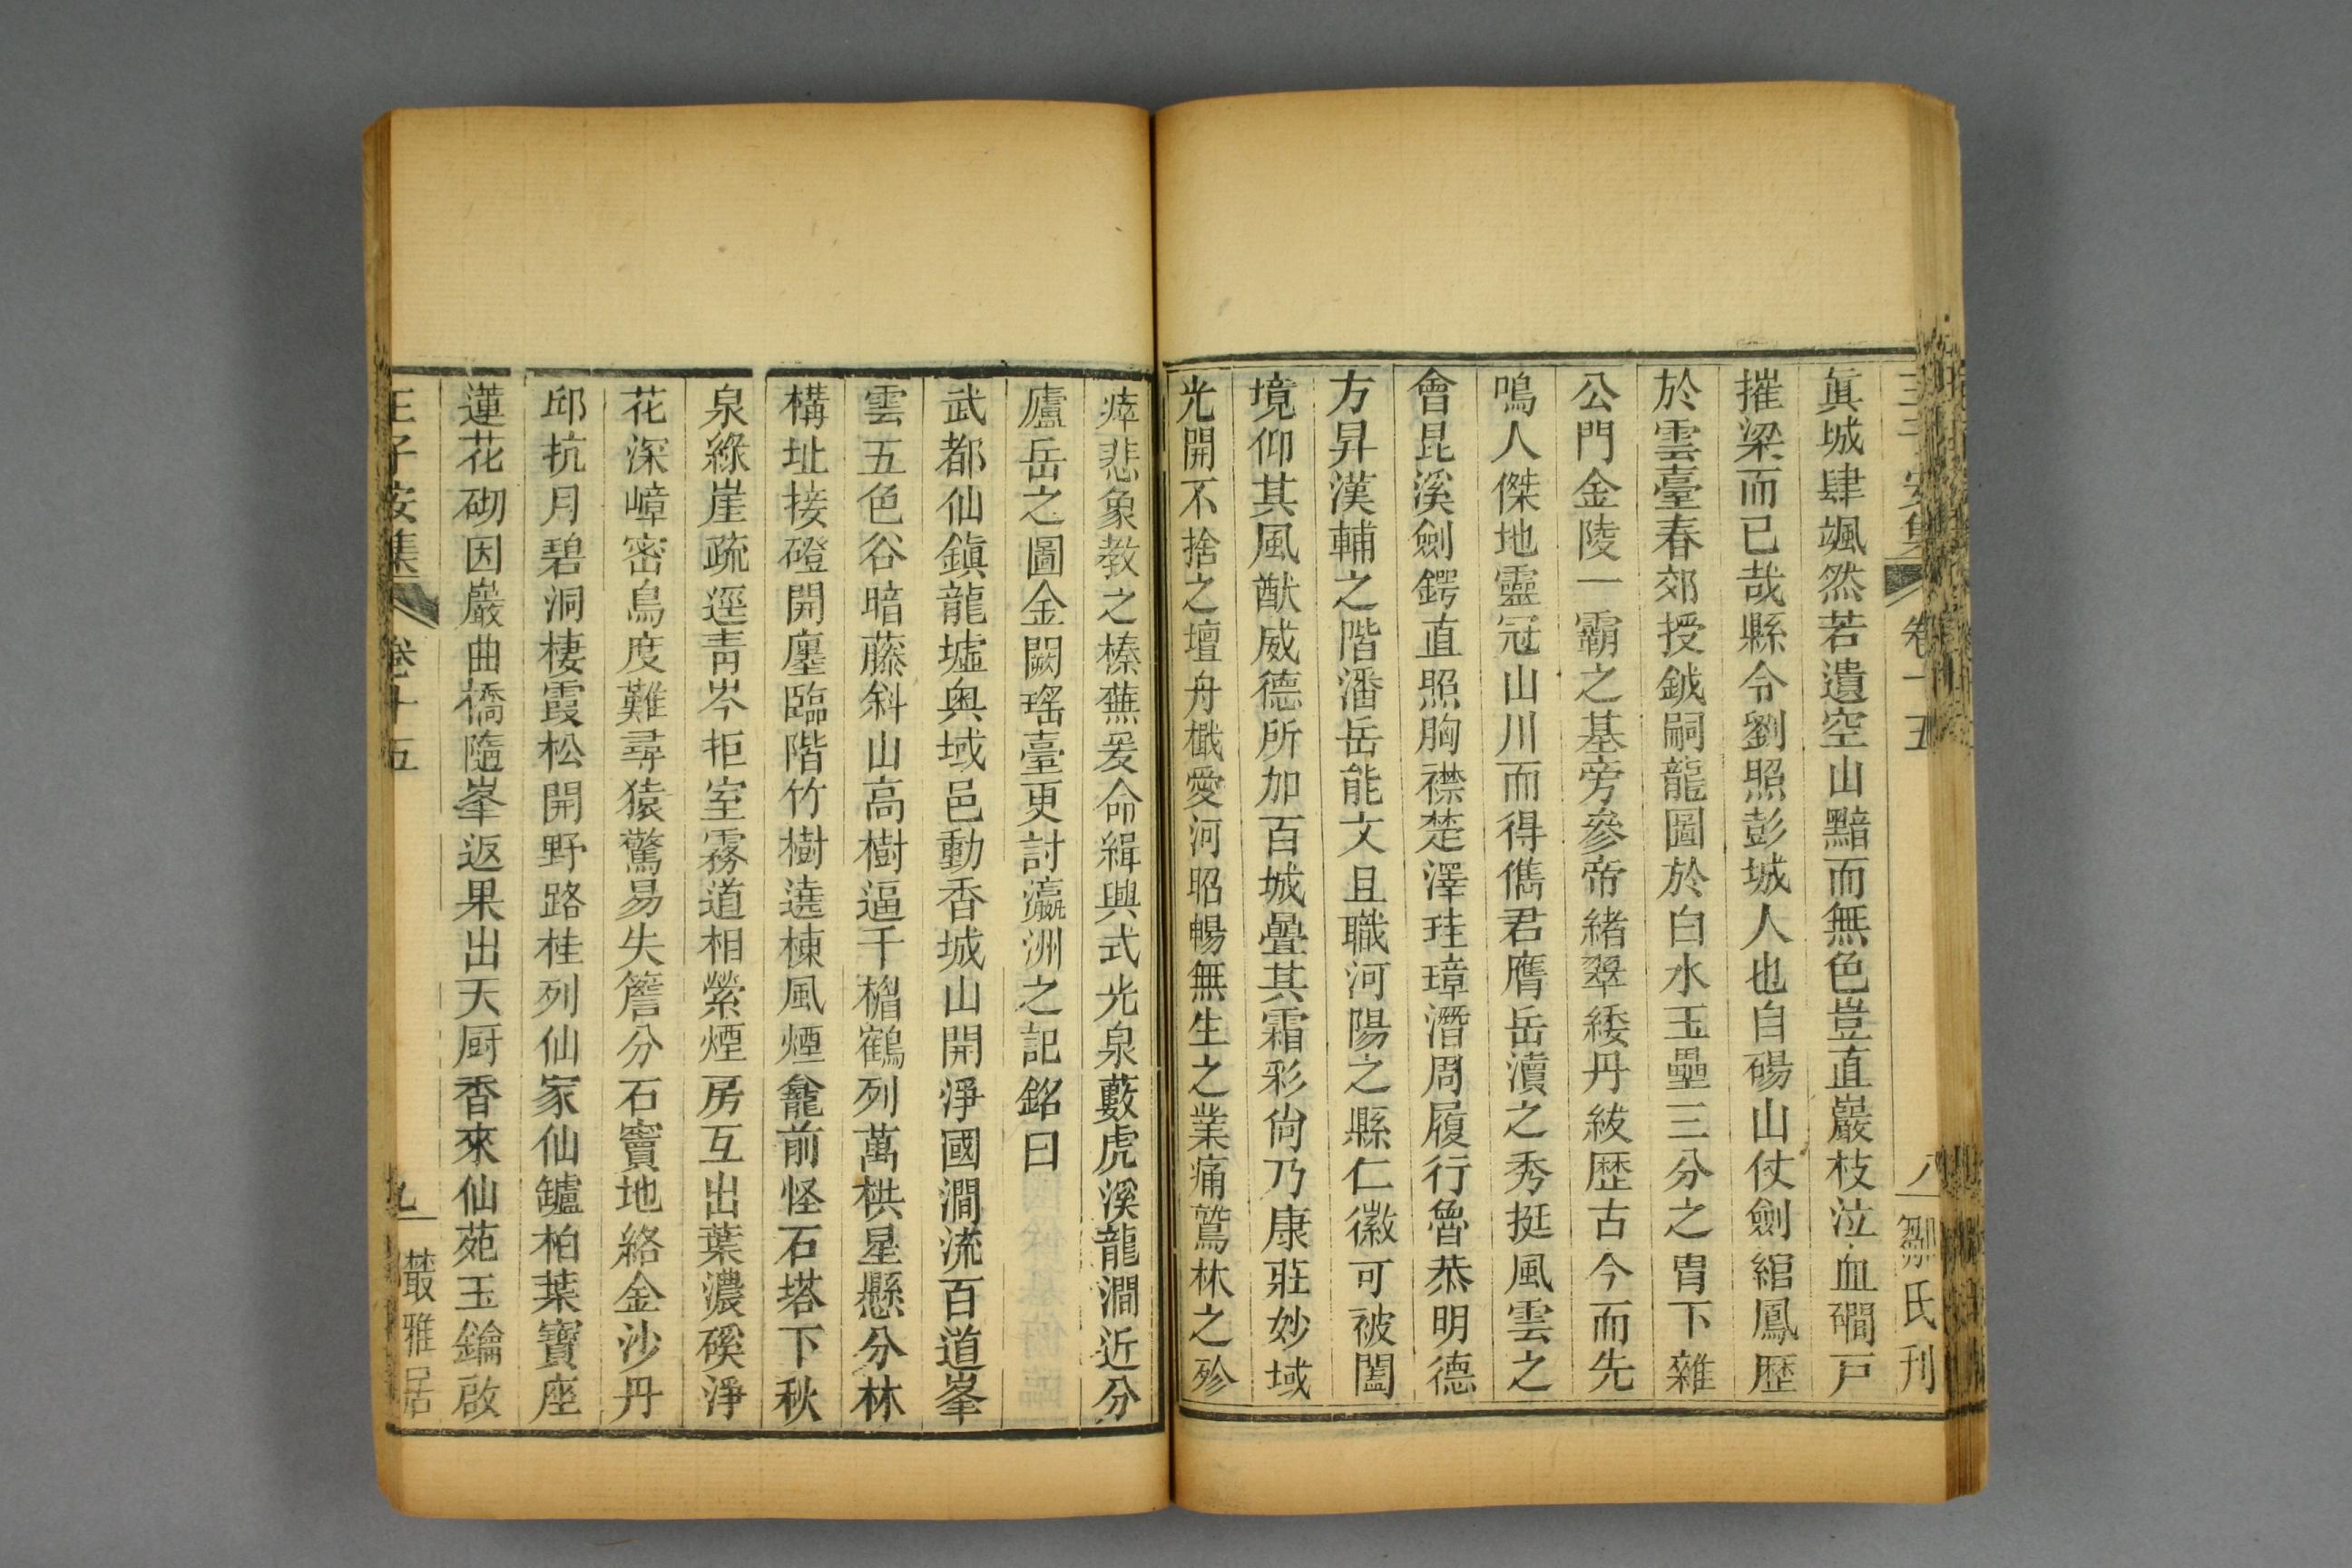 王子安集 卷十五 八 鄒氏刊
眞城肆颯然若遺空山黯而無色豈直巖枝泣血磵戸
摧梁而已哉縣令劉照彭城人也自碭山仗劍綰鳳歷
於雲臺春郊授鉞嗣龍圖於白水玉壘三分之胄下雜
公門金陵一霸之基旁參帝緒翠緌丹紱歷古今而先
鳴人傑地靈冠山川而得儁君膺岳瀆之秀挺風雲之
會昆溪劍鍔直照胸襟楚澤珪璋潛周履行魯恭明德
方昇漢輔之階潘岳能文且職河陽之縣仁徽可被闔
境仰其風猷威德所加百城疊其霜彩尙乃康莊妙域
光開不捨之壇舟檝愛河昭暢無生之業痛鷲林之殄
瘁悲象教之榛蕪爰命緝興式光泉藪虎溪龍澗近分
廬岳之圖金闕瑤臺更討瀛洲之記銘曰
武都仙鎭龍墟奥域邑動香城山開淨國澗流百道峯
雲五色谷暗藤斜山高樹逼千楣鶴列萬栱星懸分林
構址接磴開廛臨階竹樹遶棟風煙龕前怪石塔下秋
泉綠崖疏逕靑岑拒室霧道相縈煙房互出葉濃磎淨
花深嶂密鳥度難尋猿驚易失簷分石竇地絡金沙丹
邱抗月碧洞棲霞松開野路桂列仙家仙鑪柏葉寶座
蓮花砌因巖曲橋隨峯返果出天厨香來仙苑玉鑰啟
王子安集 卷十五 九 叢雅居